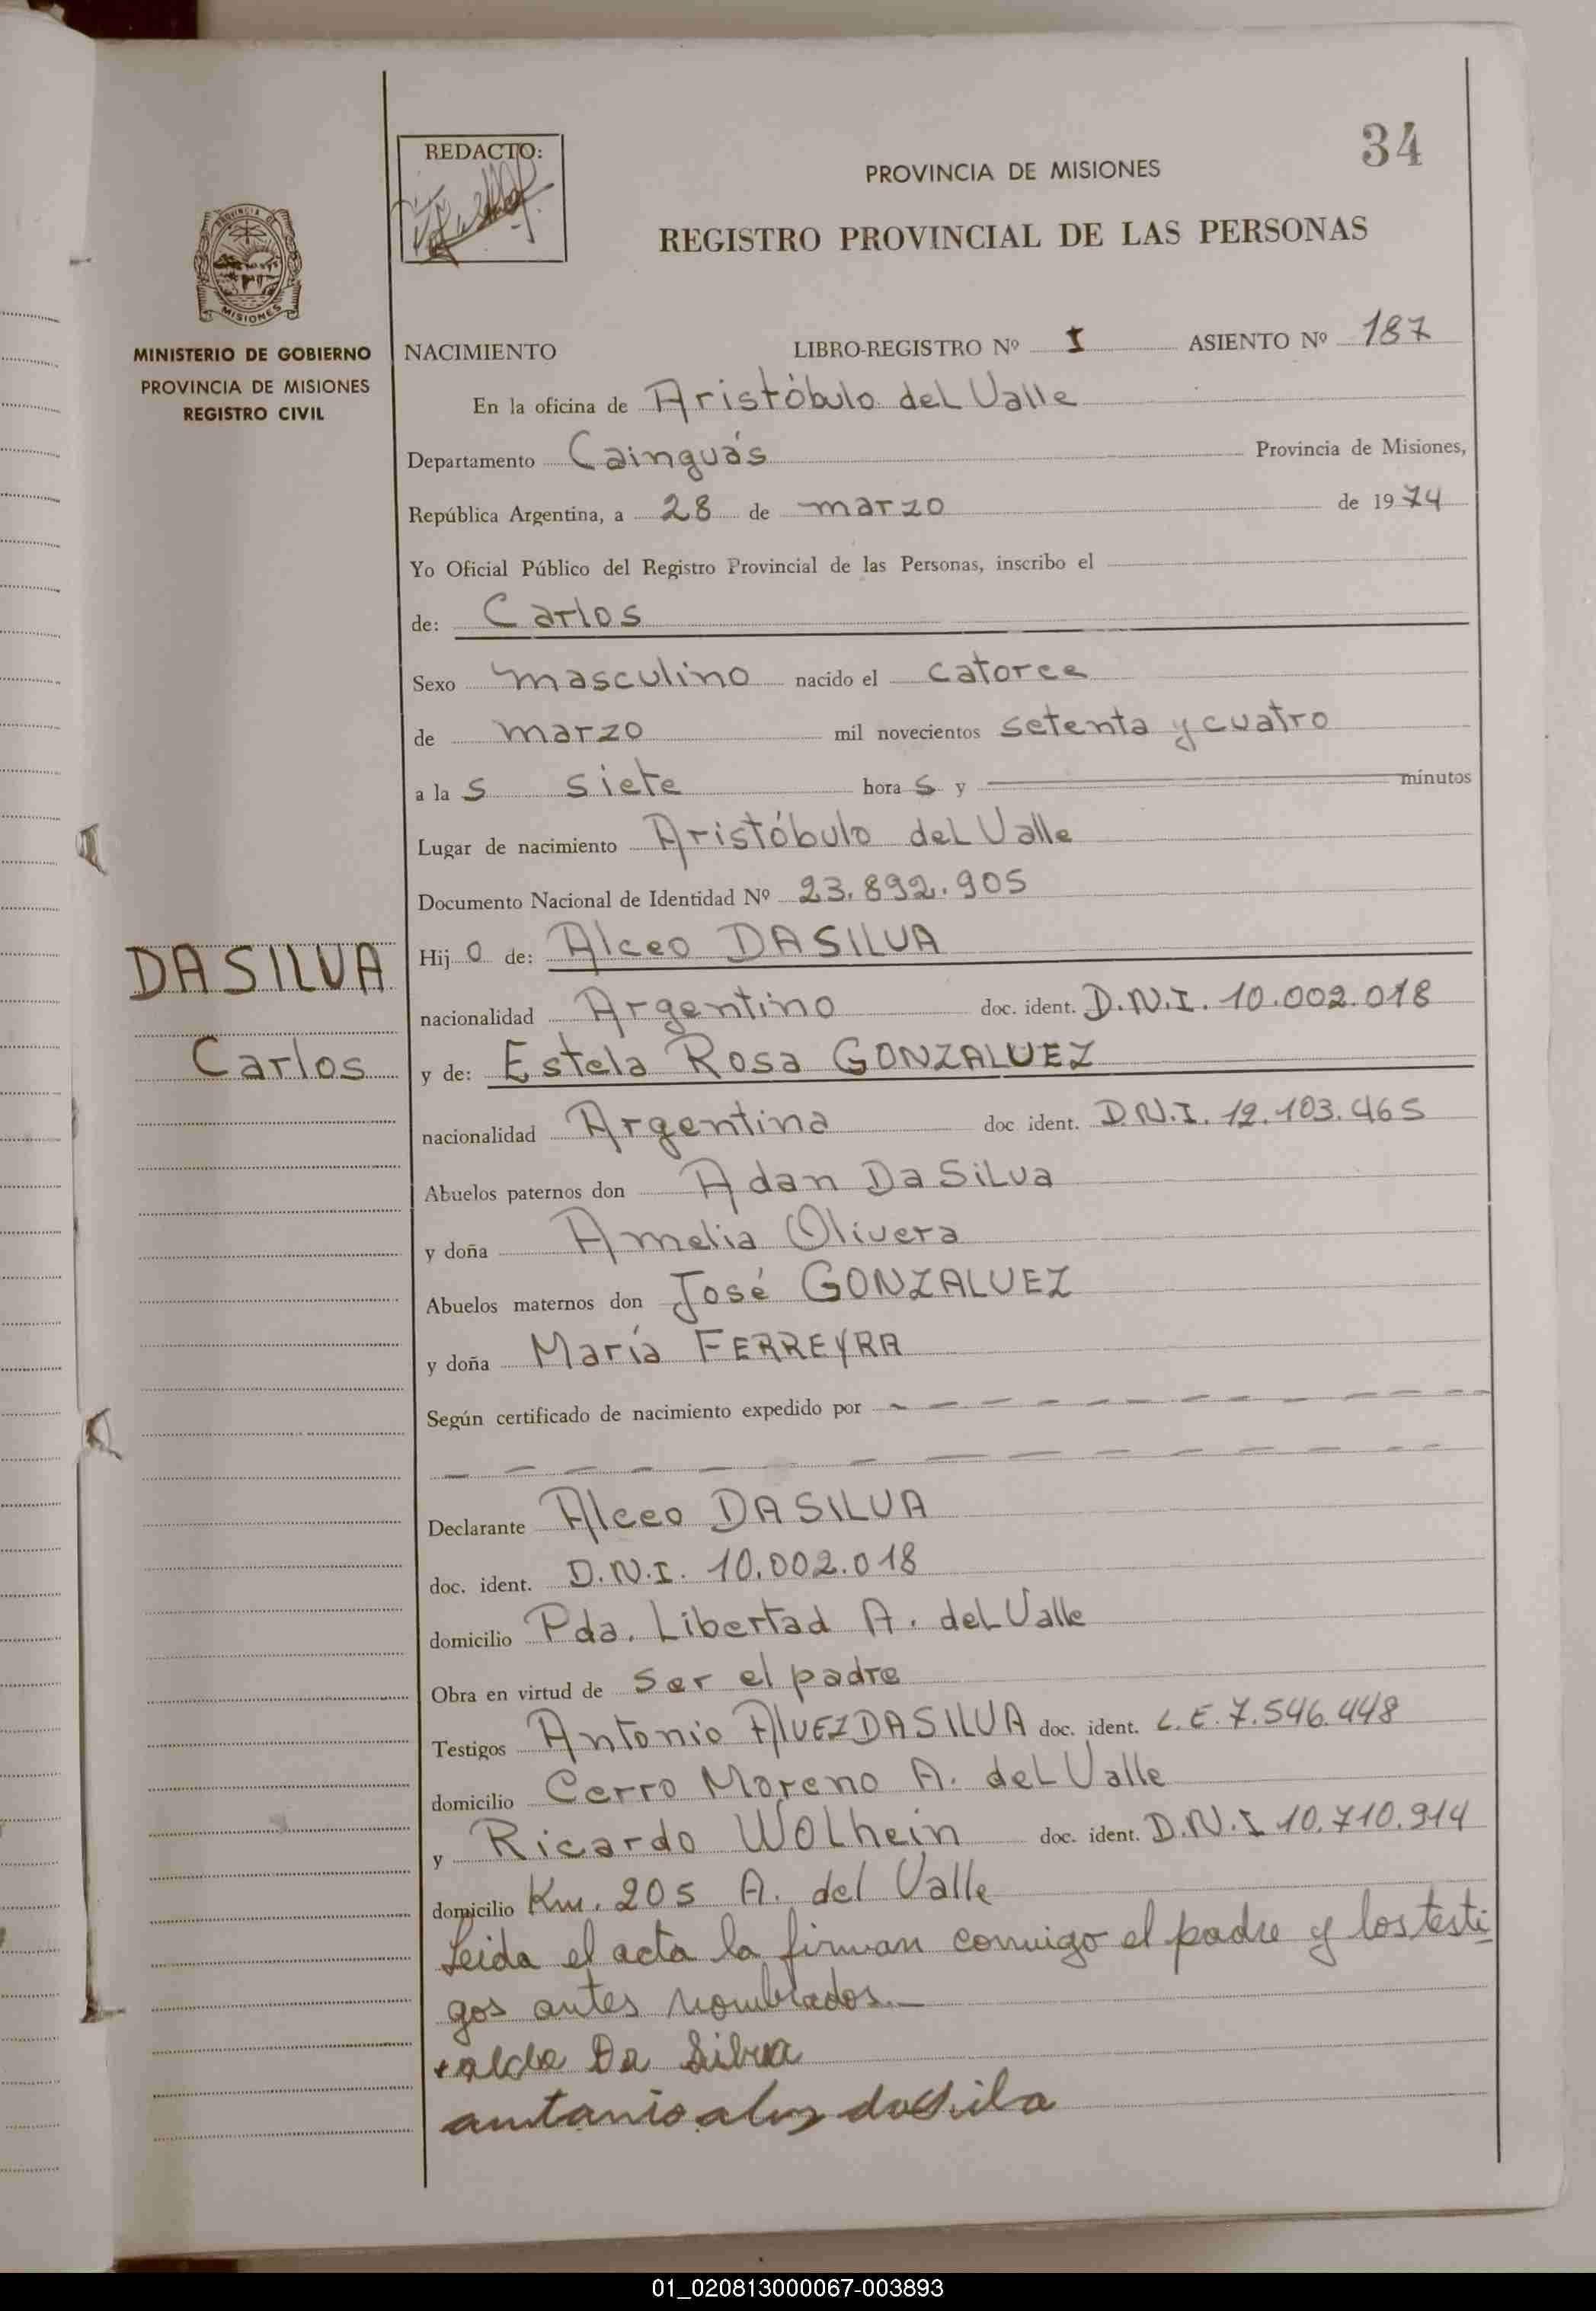 34
REDACTO:
PROVINCIA DE MISIONES
REGISTRO PROVINCIAL DE LAS PERSONAS
PROVINCIA DE
MISIONES
MINISTERIO DE GOBIERNO
PROVINCIA DE MISIONES
REGISTRO CIVIL
NACIMIENTO LIBRO-REGISTRO Nº I ASIENTO Nº 187
En la oficina de Aristóbulo del Valle
Departamento Cainguás Provincia de Misiones,
República Argentina, a 28 de marzo de 1974
Yo Oficial Público del Registro Provincial de las Personas, inscribo el
de: Carlos
Sexo masculino nacido el catorce
de marzo mil novecientos setenta y cuatro
a la s siete hora s y minutos
Lugar de nacimiento Aristóbulo del Valle
Documento Nacional de Identidad Nº 23.892.905
DASILVA
Carlos
Hij o de: Alceo DASILVA
nacionalidad Argentino doc. ident. D.N.I. 10.002.018
y de: Estela Rosa GONZALVEZ
nacionalidad Argentina doc ident. D.N.I. 12.103.465
Abuelos paternos don Adan DaSilva
y doña Amelia Olivera
Abuelos maternos don José GONZALVEZ
y doña María FERREYRA
Según certificado de nacimiento expedido por
Declarante Alceo DASILVA
doc. ident. D.N.I. 10.002.018
domicilio Pda. Libertad A. del Valle
Obra en virtud de ser el padre
Testigos Antonio AlVEZDASILVA doc. ident. L.E. 7.546.448
domicilio Cerro Moreno A. del Valle
y Ricardo WOLhein doc. ident. D.N.I 10.710.914
domicilio Km. 205 A. del Valle
Leida el acta la firman conmigo el padre y los testi
gos antes nombrados.
Da Silva